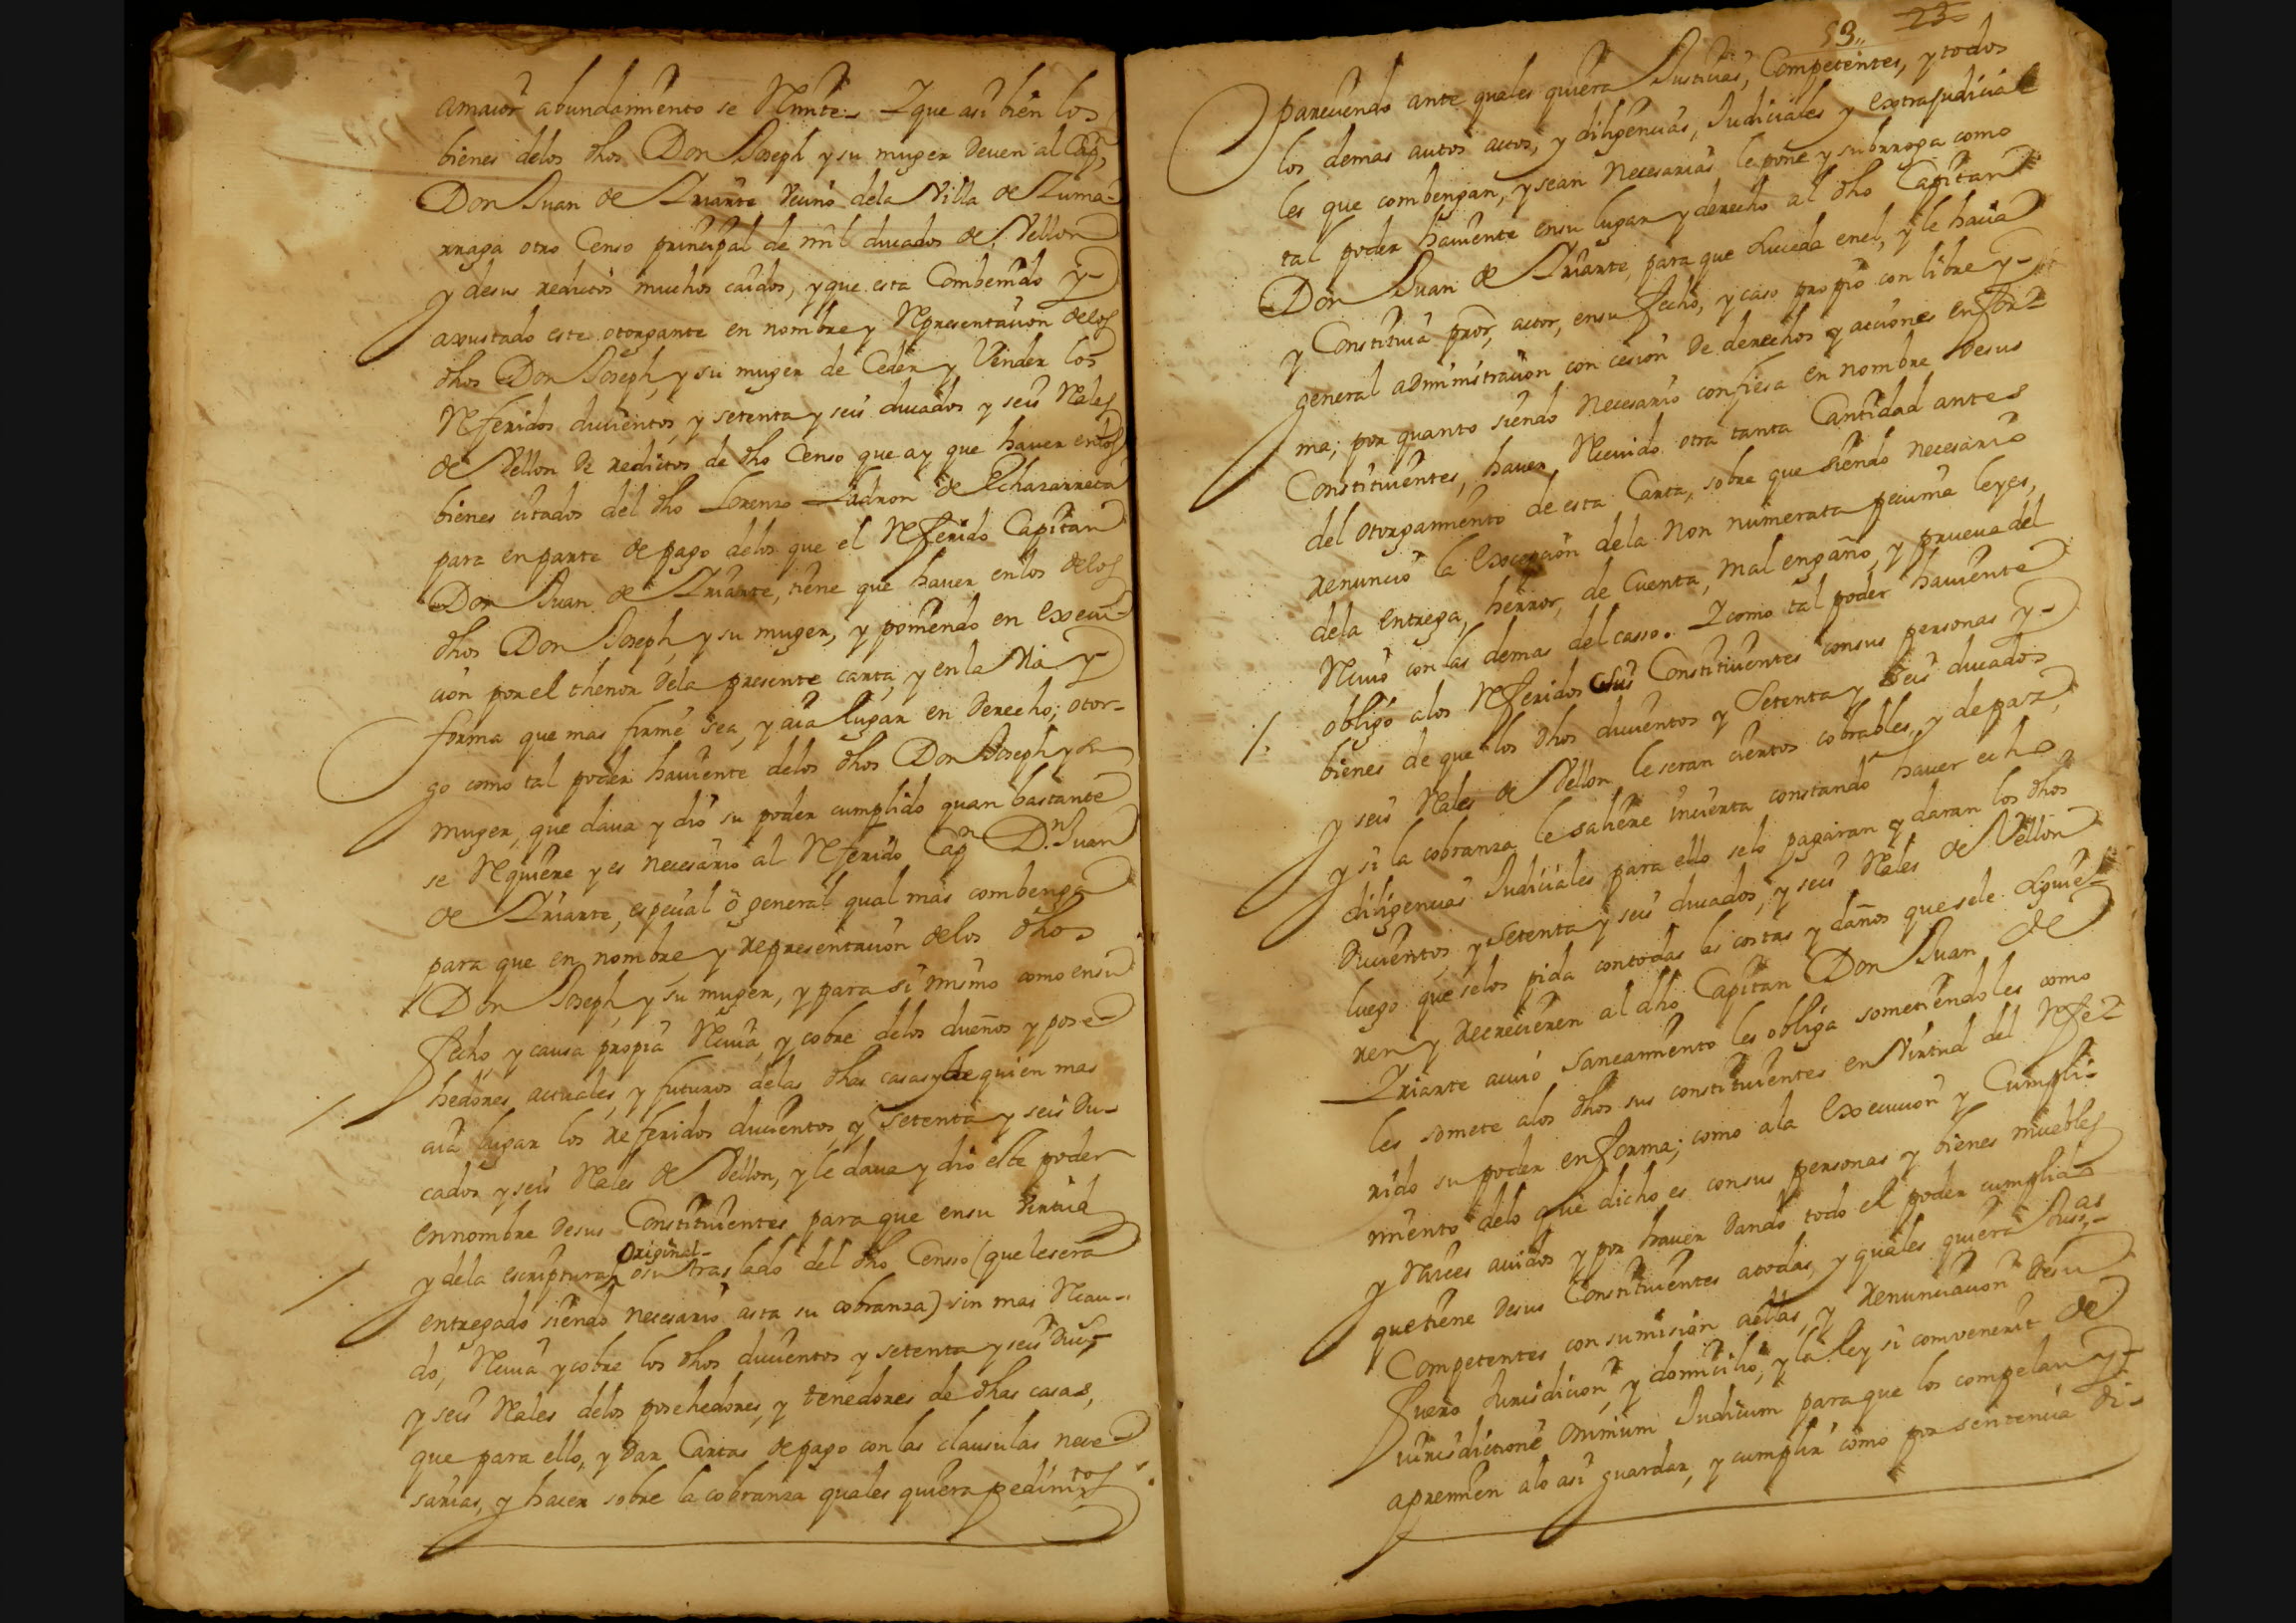 amaior abundamiento se Remite. Y que asi bien los
bienes delos dhos Don Joseph y su muger deven al Cap.n
Don Juan de Yriarte vecino dela Villa de Zuma-
rraga otro Censo principal de mil ducados de Vellon
y desus reditos muchos caidos, y que esta Combenido y
axustado este otorgante en nombre y Representacion delos
dhos Don Joseph y su muger de Ceder y Vender los
Referidos ducientos y setenta y seis ducados y seis Rales
de Vellon de reditos de dho Censo que ay que haver enlos
bienes citados del dho Lorenzo Ladron de Echazarreta
para en parte de pago delos que el Referido Capitan
Don Juan de Yriarte, tiene que haver enlos delos
dhos Don Joseph y su muger, y poniendo en execu-
cion por el thenor dela presente carta, y en la Via y
forma que mas firme sea, y aia lugar en Derecho; otor-
go como tal poder haviente delos dhos Don Joseph y su
muger, que dava y dio su poder cumplido quan bastante
se Requiere y es necesario al Referido Cap.n D.n Juan
de Yriarte, especial ò general qual mas combenga
para que en nombre y representacion delos dhos
Don Joseph y su muger, y para si mismo como ensu
fecho y causa propia Reciva, y cobre delos dueños y pose-
hedores actuales, y futuros delas dhas casas y de quien mas
aia lugar los referidos ducientos y setenta y seis du-
cados y seis Rales de Vellon, y le dava y dio este poder
ennombre desus Constituientes para que ensu virtud
y dela escriptura Original ò su traslado del dho Censo (que le sera
entregado siendo necesario asta su cobranza) sin mas Recau-
do, Reciva y cobre los dhos ducientos y setenta y seis Duc.s
y seis Rales delos posehedores, y tenedores de dhas casas,
que para ello, y dar Cartas de pago con las clausulas nece-
sarias, y hacer sobre la cobranza quales quiera pedim.tos
53,, 23
pareciendo ante quales quiera Justicias, Competentes, y todos
los demas autos actos, y diligencias, Judiciales y extrajudicia-
les que combengan, y sean necesarias le pone y subrroga como
tal poder haviente ensu lugar y derecho al dho Capitan
Don Juan de Yriarte, para que suceda enel, y le hacia
y Constituia pror, actor, ensu fecho, y caso propio con libre y
general administracion con cesion de derechos y acciones enfor-
ma; por quanto siendo necesario confiesa en nombre desus
Constituientes, haver Recivido otra tanta Cantidad antes
del otorgamiento de esta Carta, sobre que siendo necesario
renunció la excepcion dela non numerata pecunia leyes,
dela entrega, herror, de Cuenta, mal engaño, y prueva del
Recivo con las demas del casso. Y como tal poder haviente
obligó alos Referidos sus Constituientes consus personas y
bienes de que los dhos ducientos y Setenta y seis ducados
y seis Rales de Vellon le seran ciertos cobrables, y de paz,
y si la cobranza le saliere incierta constando haver echo
diligencias Judiciales para ello selo pagaran y daran los dhos
ducientos y setenta y seis ducados, y seis Rales de Vellon
luego que selos pida contodas las costas y daños que sele siguie-
ren y recrecieren al dho Capitan Don Juan de
Yriarte acuio saneamiento les obliga sometiendoles como
les somete alos dhos sus constituientes en Virtud del Refe-
rido su poder enforma; como ala execucion y Cumpli-
miento delo que dicho es consus personas y bienes muebles
y Raices avidos y por haver dando todo el poder cumplido
que tiene desus Constituientes atodas, y quales quiera Juss.as
Competentes con sumision aellas, y renunciacion desu
fuero Jurisdicion, y domicilio, y la ley si convenerit de
iurisdictione omnium Judicum para que los compelan y
apremien alo asi guardar, y cumplir como por sentencia di-